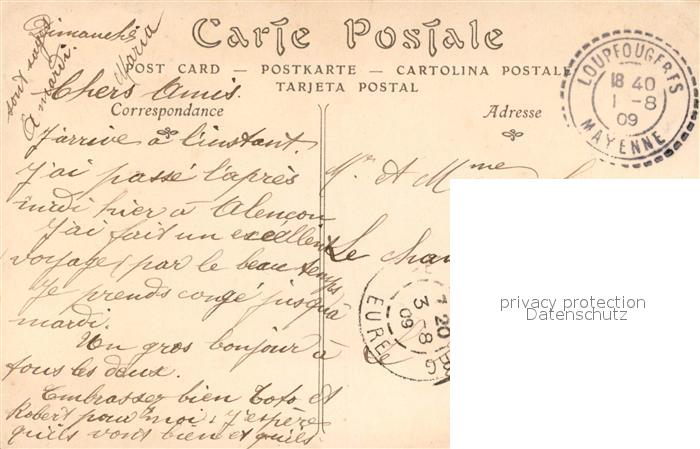 Carte Postale
POST CARD — POSTKARTE — CARTOLINA POSTALE
TARJETA POSTAL
Correspondance
Adresse
Dimanche
Chers Amis.
J'arrive à l'instant.
J'ai passé l'après
midi hier à Alençon
J'ai fait un excéllent
voyage (par le beau temps
Je prends congé jusqu'à
mardi.
Un gros bonjour à
tous les deux.
Embrassez bien Toto et
Robert pour moi. J'espère
qu'ils vont bien et qu'ils
sont sages
A mardi.
Maria
Mr et Mme
Le
LOUPFOUGERES
18 40
1 - 8
09
MAYENNE
7 20
3 - 8
09
EURE
privacy protection
Datenschutz